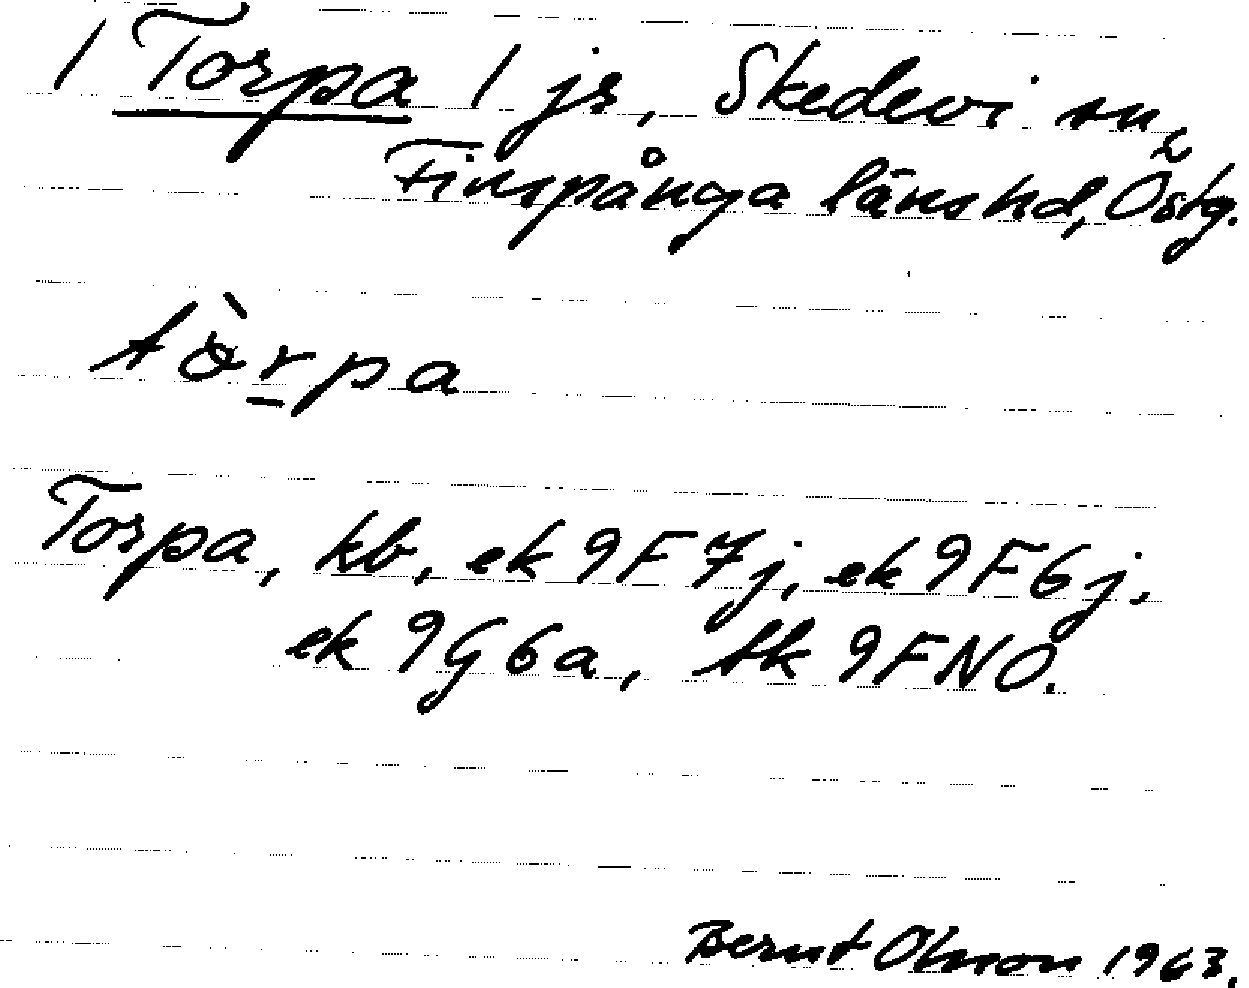 / Torpa / js, Skedevi sn,
Finspånga länshd, Östg.
tò̀rpa
Torpa, kb, ek 9F7j, ek 9F6j.
ek 9G6a, tk 9FNO.
Bernt Olsson 1963.